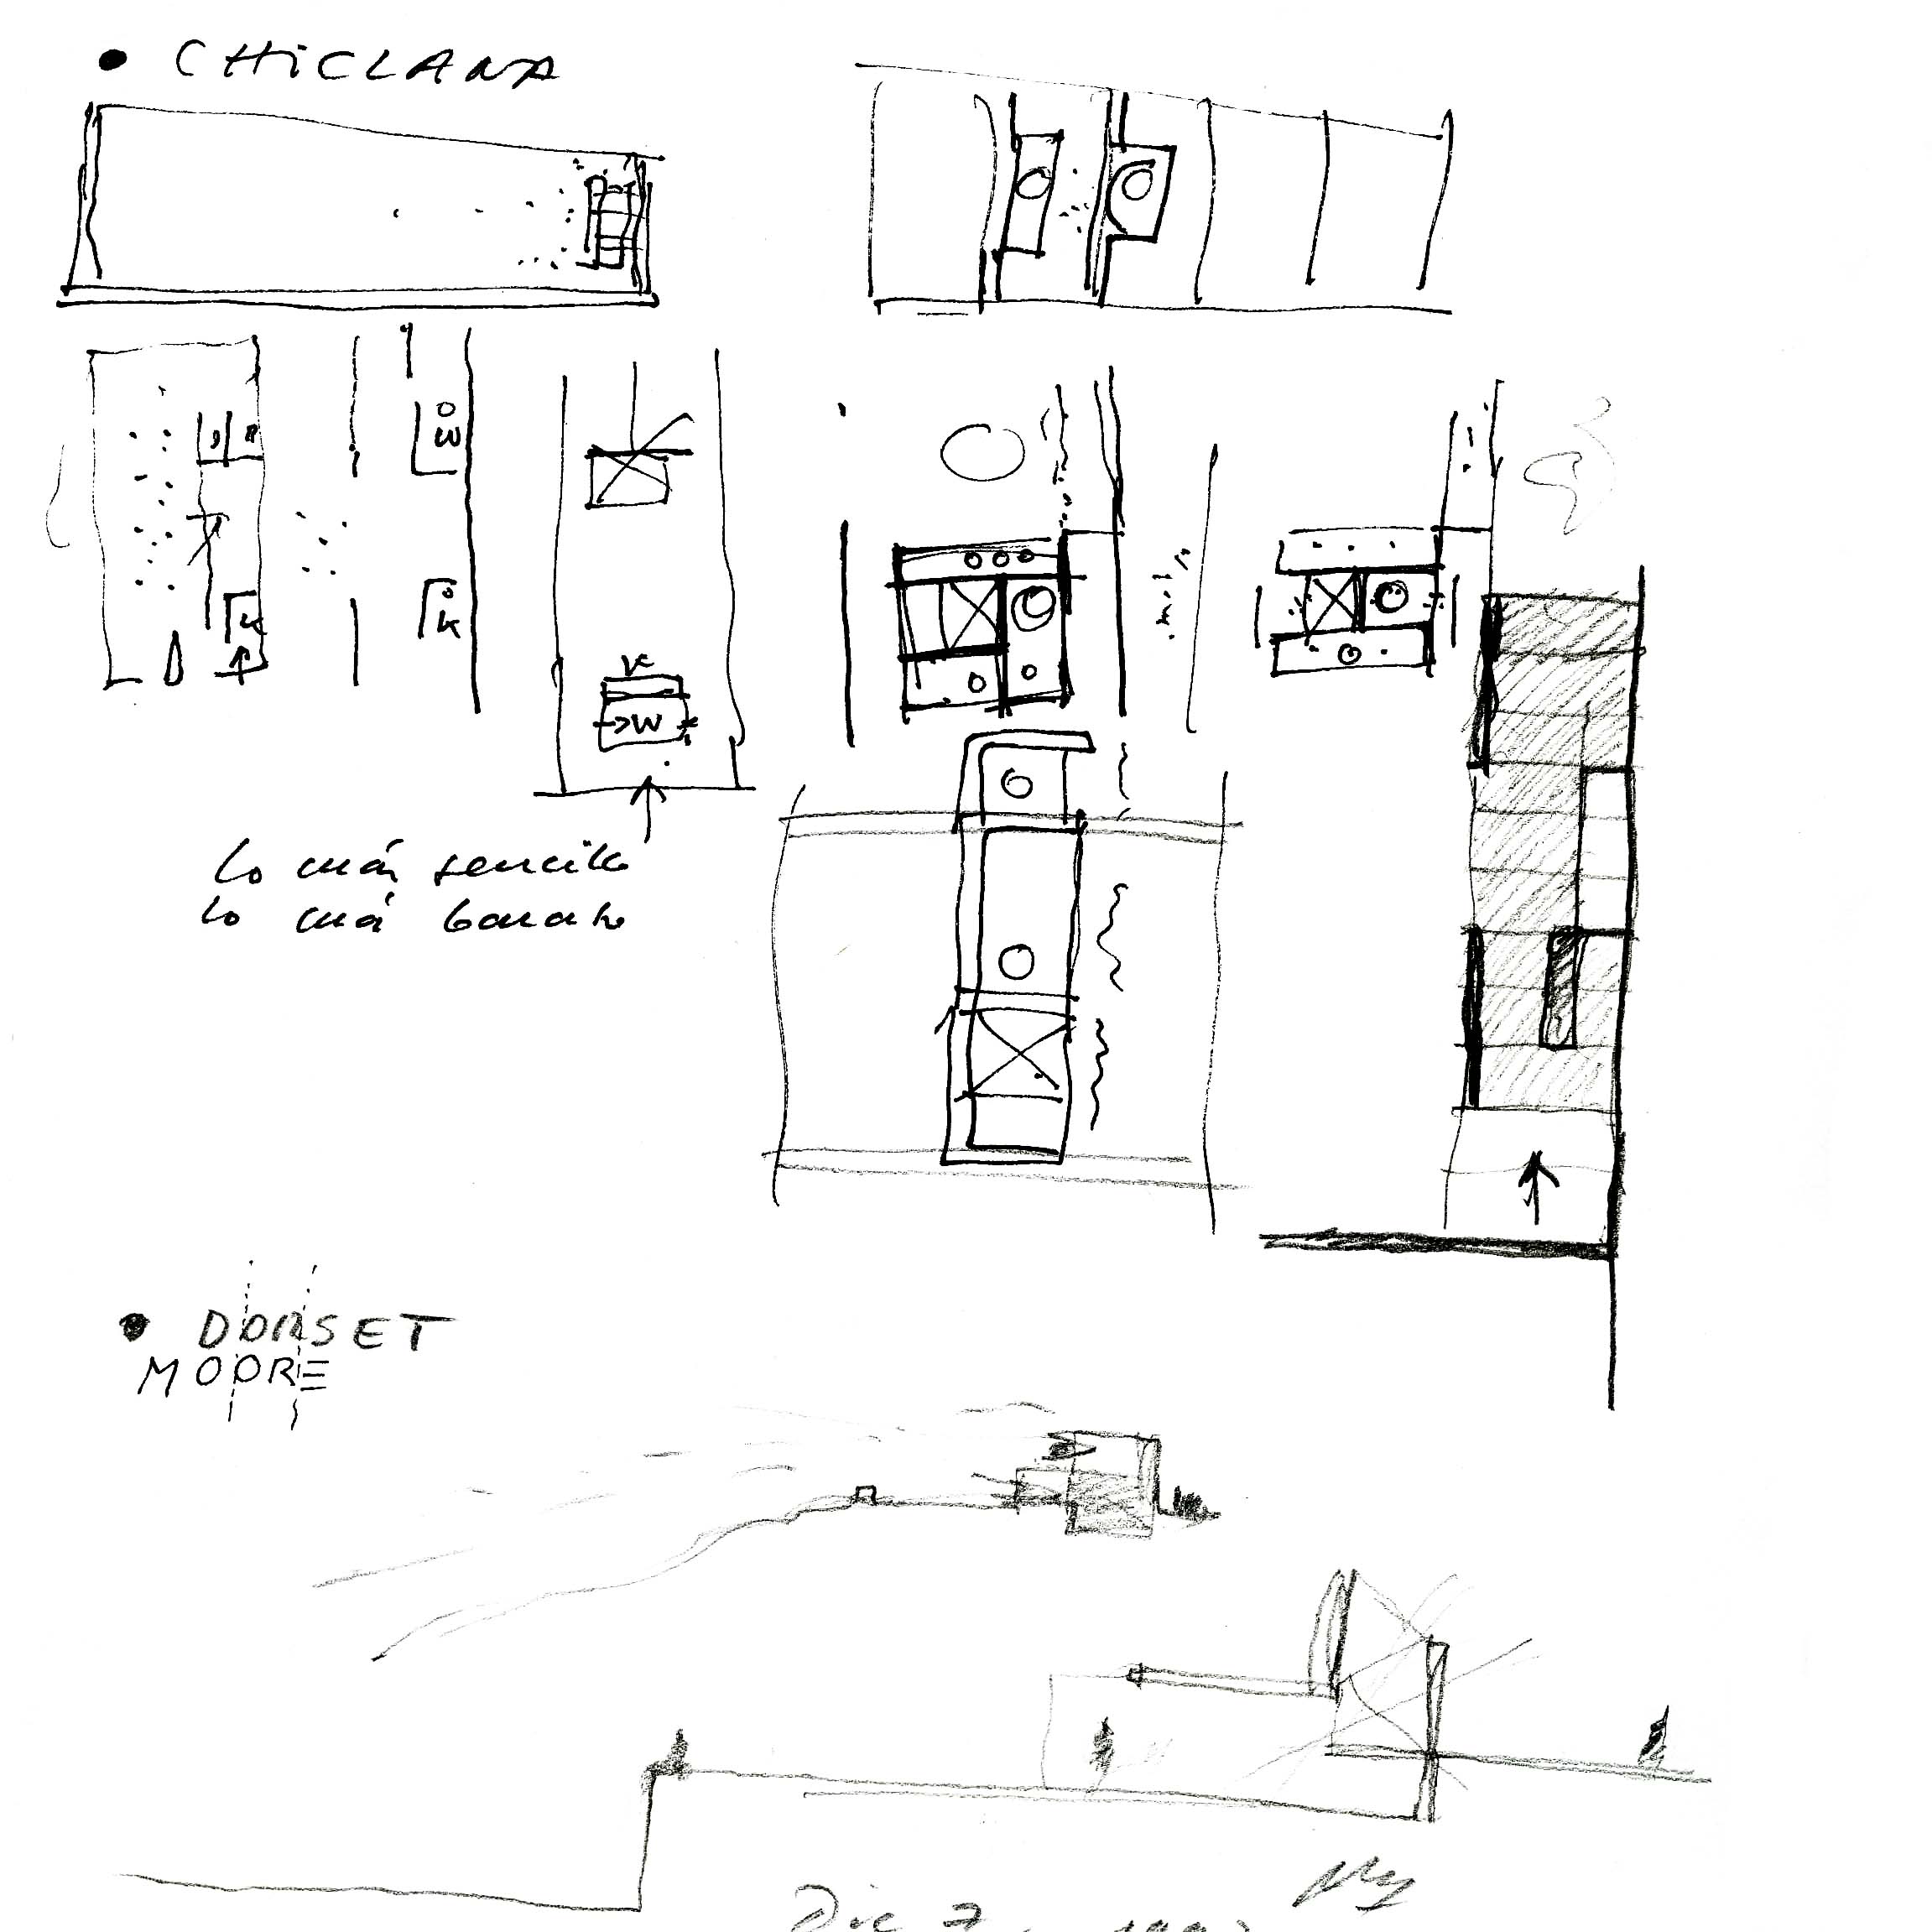 • CHiCLANA
W
K
K
K
→W
lo más sencillo
lo más barato
• DORSET
MOORE
Dic 7